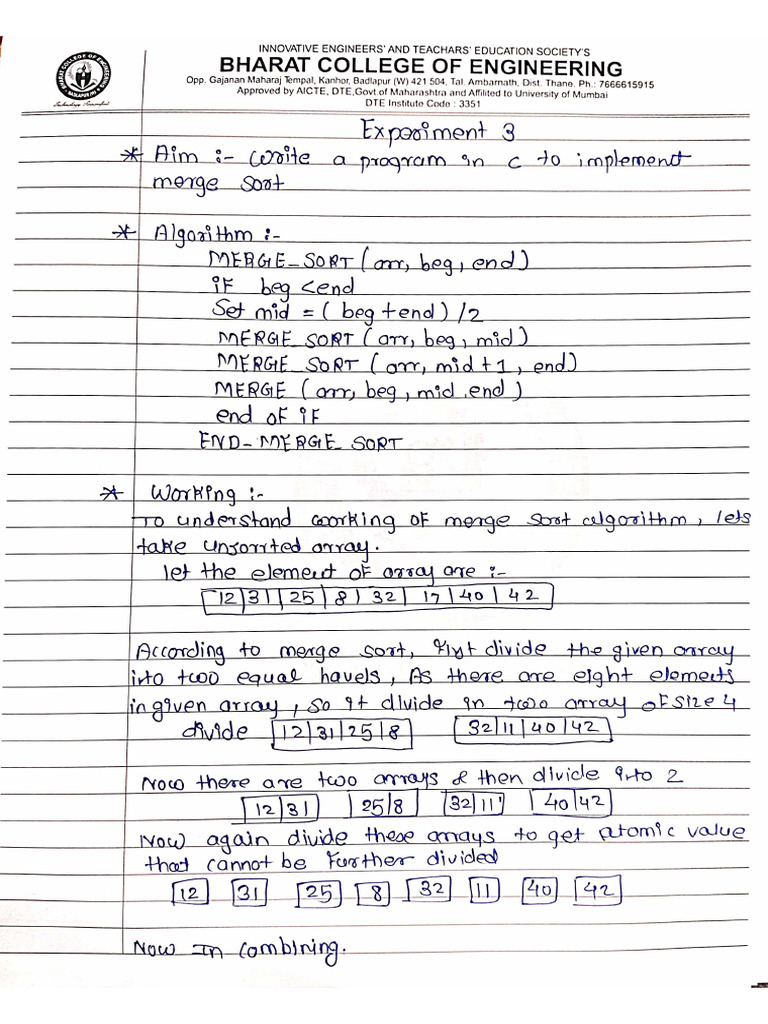 INNOVATIVE ENGINEERS' AND TEACHARS' EDUCATION SOCIETY'S
BHARAT COLLEGE OF ENGINEERING
Opp. Gajanan Maharaj Tempal, Kanhor, Badlapur (W) 421 504, Tal. Ambarnath, Dist. Thane. Ph.: 7666615915
Approved by AICTE, DTE,Govt.of Maharashtra and Affilited to University of Mumbai
DTE Institute Code : 3351
Experiment 3
* Aim :- Write a program in c to implement
merge sort
* Algorithm :-
MERGE_SORT (arr, beg, end)
if beg < end
Set mid = ( beg + end ) /2
MERGE_SORT (arr, beg, mid)
MERGE_SORT (arr, mid + 1, end)
MERGE (arr, beg, mid .end )
end of if
END-MERGE_SORT
* Working :-
To understand working of merge sort algorithm, lets
take unsorrted array.
let the element of array are :-
12 | 31 | 25 | 8 | 32 | 17 | 40 | 42
According to merge sort, first divide the given array
into two equal havels, As there are eight elements
in given array, so it divide in two array of size 4
divide 12 | 31 | 25 | 8 32 | 11 | 40 | 42
Now there are two arrays & then divide into 2
12 | 31 25 | 8 32 | 11 40 | 42
Now again divide these arrays to get atomic value
that cannot be further divided
12 31 25 8 32 11 40 42
Now In combining.